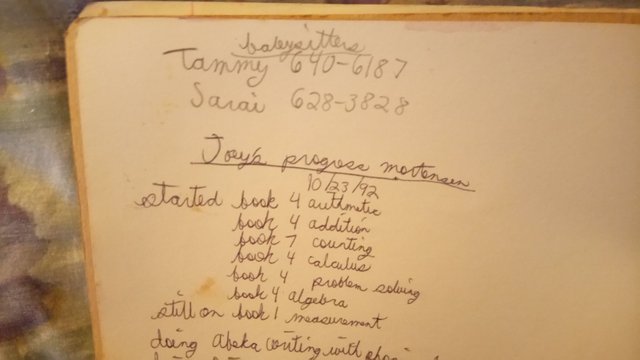 babysitters
Tammy 640-6187
Sarai 628-3828
Joey's progress mortensen
10/23/92
started book 4 arithmetic
book 4 addition
book 7 counting
book 4 calculus
book 4 problem solving
book 4 algebra
still on book 1 measurement
doing Abeka writing with